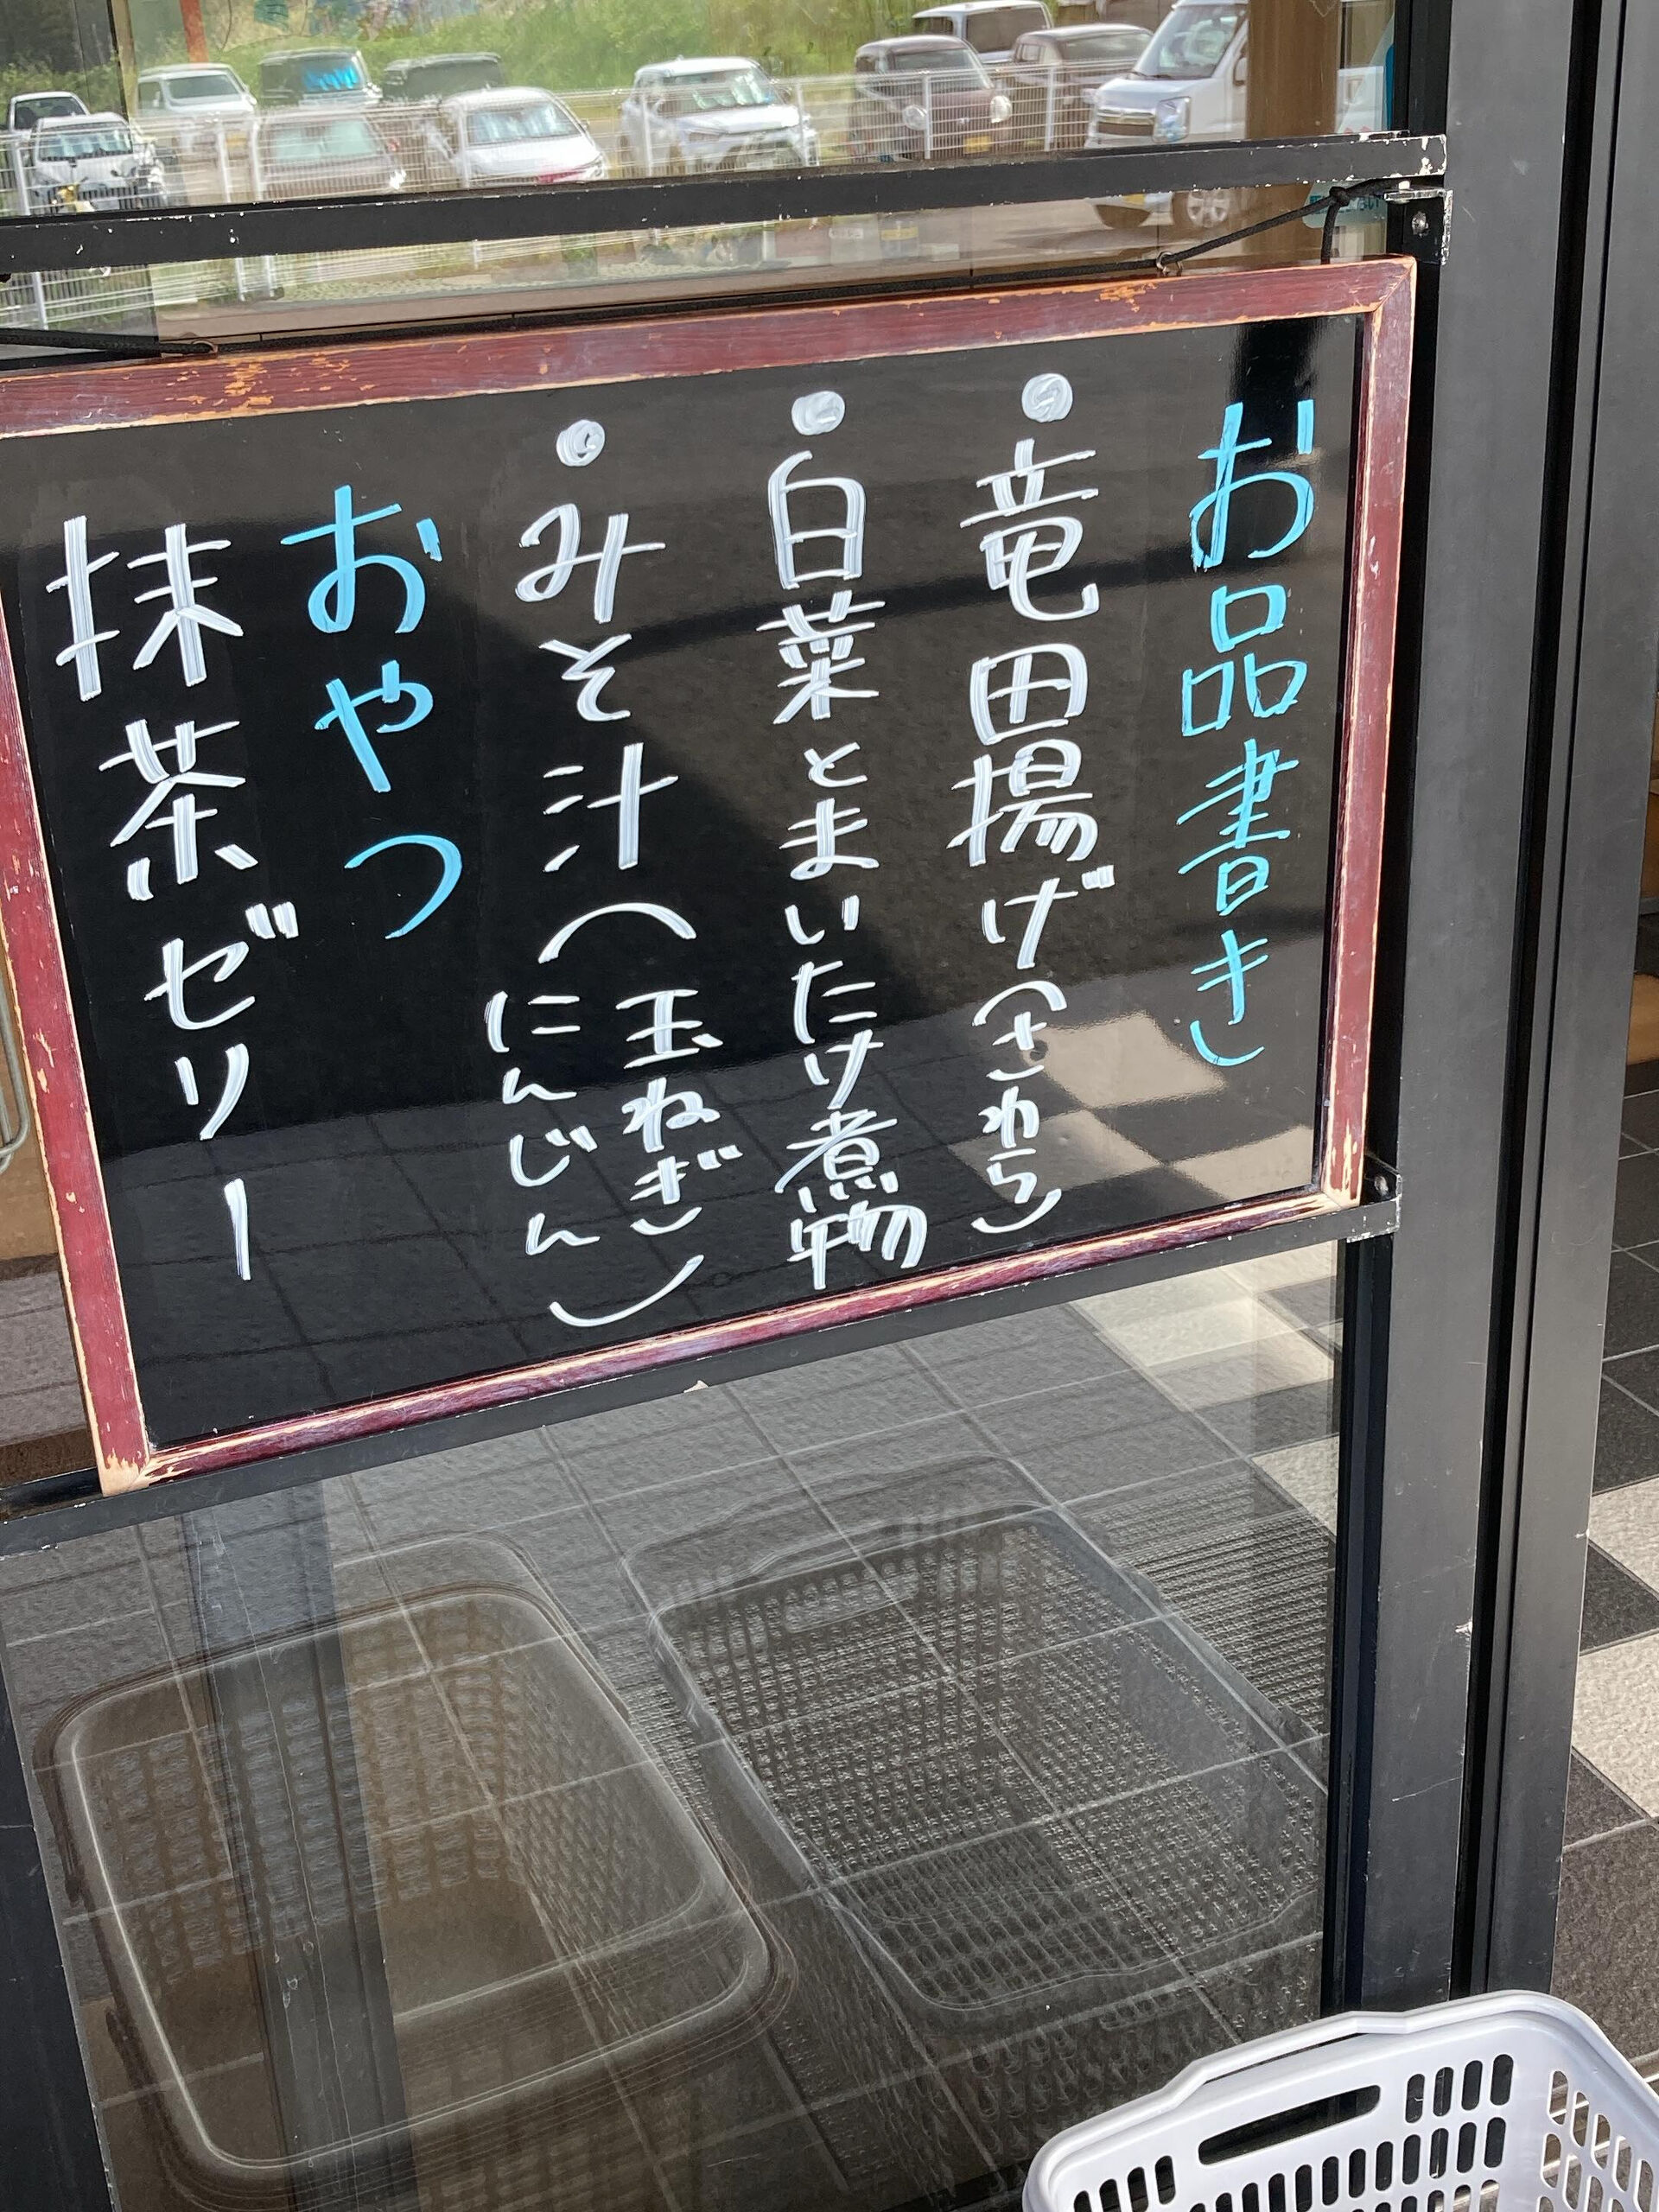 お品書き
・竜田揚げ(さわら)
・白菜とまいたけ煮物
・みそ汁(玉ねぎ
にんじん)
おやつ
抹茶ゼリー